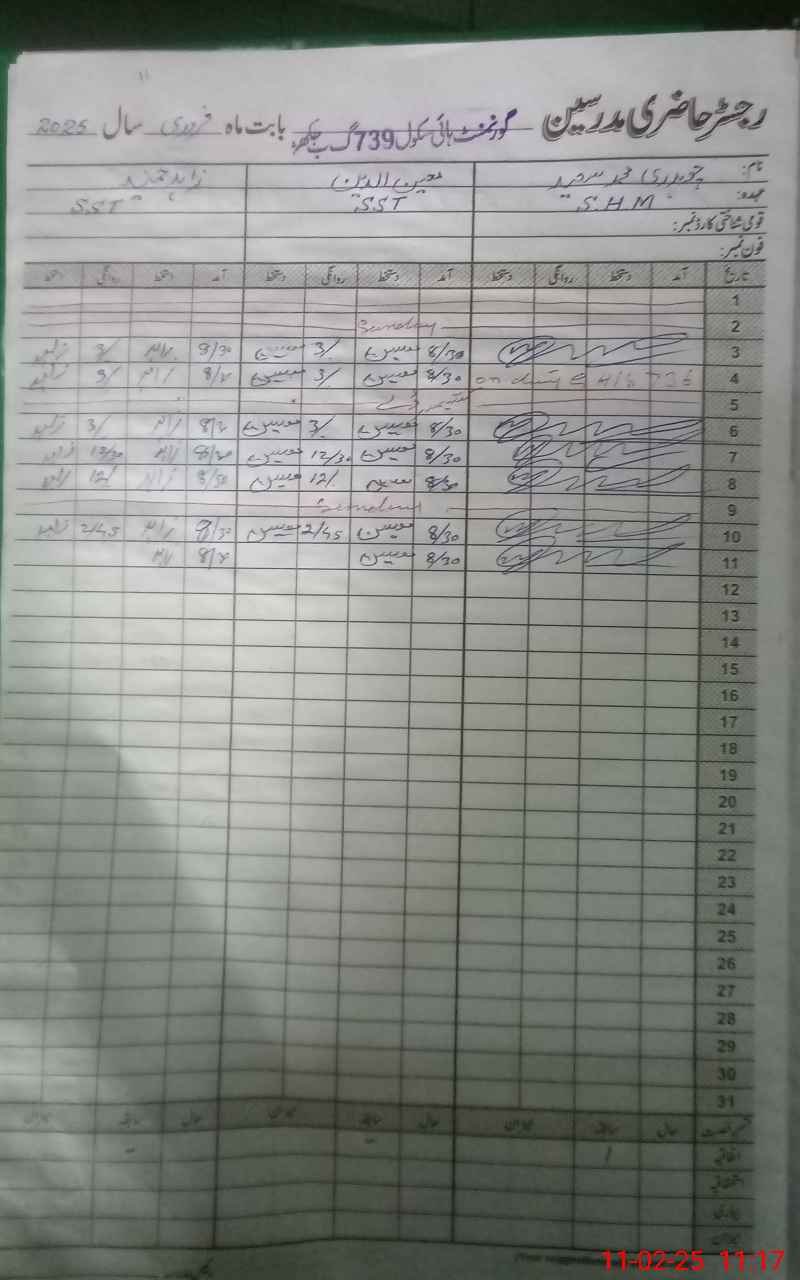 رجسٹر حاضری مدرسین گورنمنٹ ہائی سکول 739 گ ب جکھڑ بابت ماہ فروری سال 2025
نام: چوہدری محمد سعید معین الدین
عہدہ: S.H.M SST SST
قومی شناختی کارڈ نمبر:
فون نمبر:
تاریخ آمد دستخط روانگی دستخط آمد دستخط روانگی دستخط آمد دستخط روانگی دستخط
1
2 Sunday
3 8/30 معین 3/ معین 8/30 3/
4 on duty 8/30 معین 3/ معین 3/
5 کشمیر ڈے
6 8/30 معین 3/ معین 3/
7 8/30 معین 12/30 معین 8/30 12/30
8 8/30 معین 12/ معین 8/30 12/
9 Sunday
10 8/30 معین 2/45 معین 8/30 2/45
11 8/30 معین
12
13
14
15
16
17
18
19
20
21
22
23
24
25
26
27
28
29
30
31
حال سابقہ میزان حال سابقہ میزان حال سابقہ میزان
اتفاقیہ 1
استحقاقیہ
بیماری
میزان
11-02-25 11:17